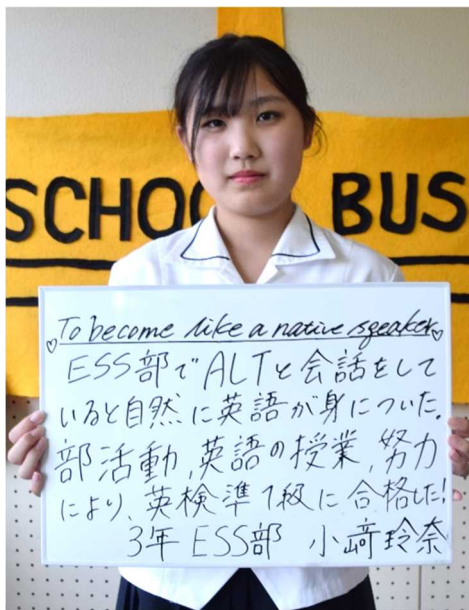 SCHOO BUS
♡To become like a native speaker♡
ESS部でALTと会話をして
いると自然に英語が身についた。
部活動,英語の授業,努力
により、英検準1級に合格した!
3年 ESS部 小﨑玲奈